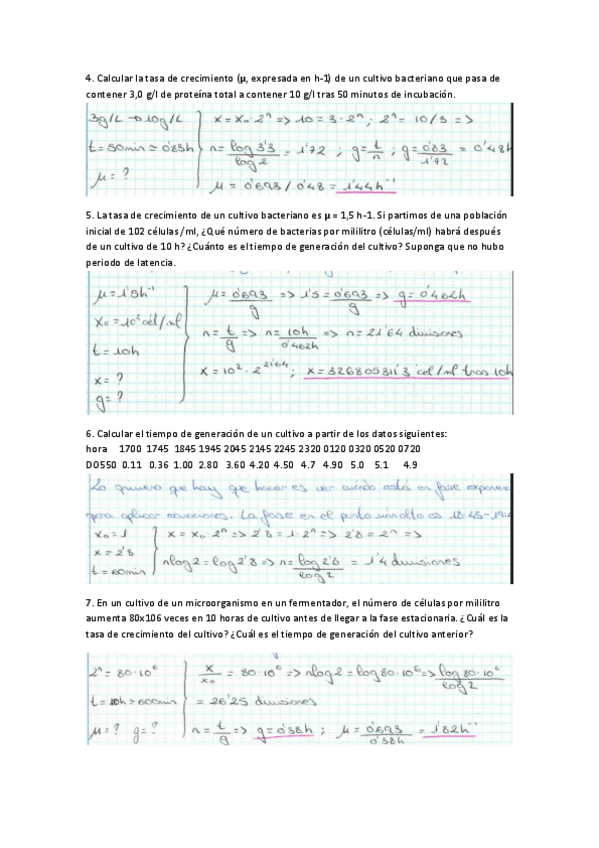 4. Calcular la tasa de crecimiento (μ, expresada en h-1) de un cultivo bacteriano que pasa de
contener 3,0 g/l de proteína total a contener 10 g/l tras 50 minutos de incubación.
3g/L → 10g/L
t = 50min ≃ 0'83h
μ = ?
x = x₀ · 2ⁿ => 10 = 3 · 2ⁿ ; 2ⁿ = 10/3 =>
n = log 3'3 / log 2 = 1'72 ; g = t/n ; g = 0'83/1'72 = 0'48h
μ = 0'693 / 0'48 = 1'44h⁻¹
5. La tasa de crecimiento de un cultivo bacteriano es μ = 1,5 h-1. Si partimos de una población
inicial de 102 células /ml, ¿Qué número de bacterias por mililitro (células/ml) habrá después
de un cultivo de 10 h? ¿Cuánto es el tiempo de generación del cultivo? Suponga que no hubo
periodo de latencia.
μ = 1'5h⁻¹
x₀ = 10² cél/ml
t = 10h
x = ?
g = ?
μ = 0'693/g => 1'5 = 0'693/g => g = 0'462h
n = t/g => n = 10h/0'462h => n = 21'64 divisiones
x = 10² · 2²¹'⁶⁴ ; x = 326809311'3 cel/ml tras 10h
6. Calcular el tiempo de generación de un cultivo a partir de los datos siguientes:
hora 1700 1745 1845 1945 2045 2145 2245 2320 0120 0320 0520 0720
DO550 0.11 0.36 1.00 2.80 3.60 4.20 4.50 4.7 4.90 5.0 5.1 4.9
Lo primero que hay que hacer es ver cuándo está en fase
para aplicar ecuaciones. La fase en el punto más alto es 18:45-
x₀ = 1
x = 2'8
t = 60min
x = x₀ · 2ⁿ => 2'8 = 1 · 2ⁿ => 2'8 = 2ⁿ =>
n log 2 = log 2'8 => n = log 2'8 / log 2 = 1'4 divisiones
7. En un cultivo de un microorganismo en un fermentador, el número de células por mililitro
aumenta 80x106 veces en 10 horas de cultivo antes de llegar a la fase estacionaria. ¿Cuál es la
tasa de crecimiento del cultivo? ¿Cuál es el tiempo de generación del cultivo anterior?
2ⁿ = 80 · 10⁶
t = 10h > 600min
μ = ? g = ?
x/x₀ = 80 · 10⁶ => n log 2 = log 80 · 10⁶ => log 80 · 10⁶ / log 2
= 26'25 divisiones
n = t/g => g = 0'38h ; μ = 0'693/0'38h = 1'82h⁻¹